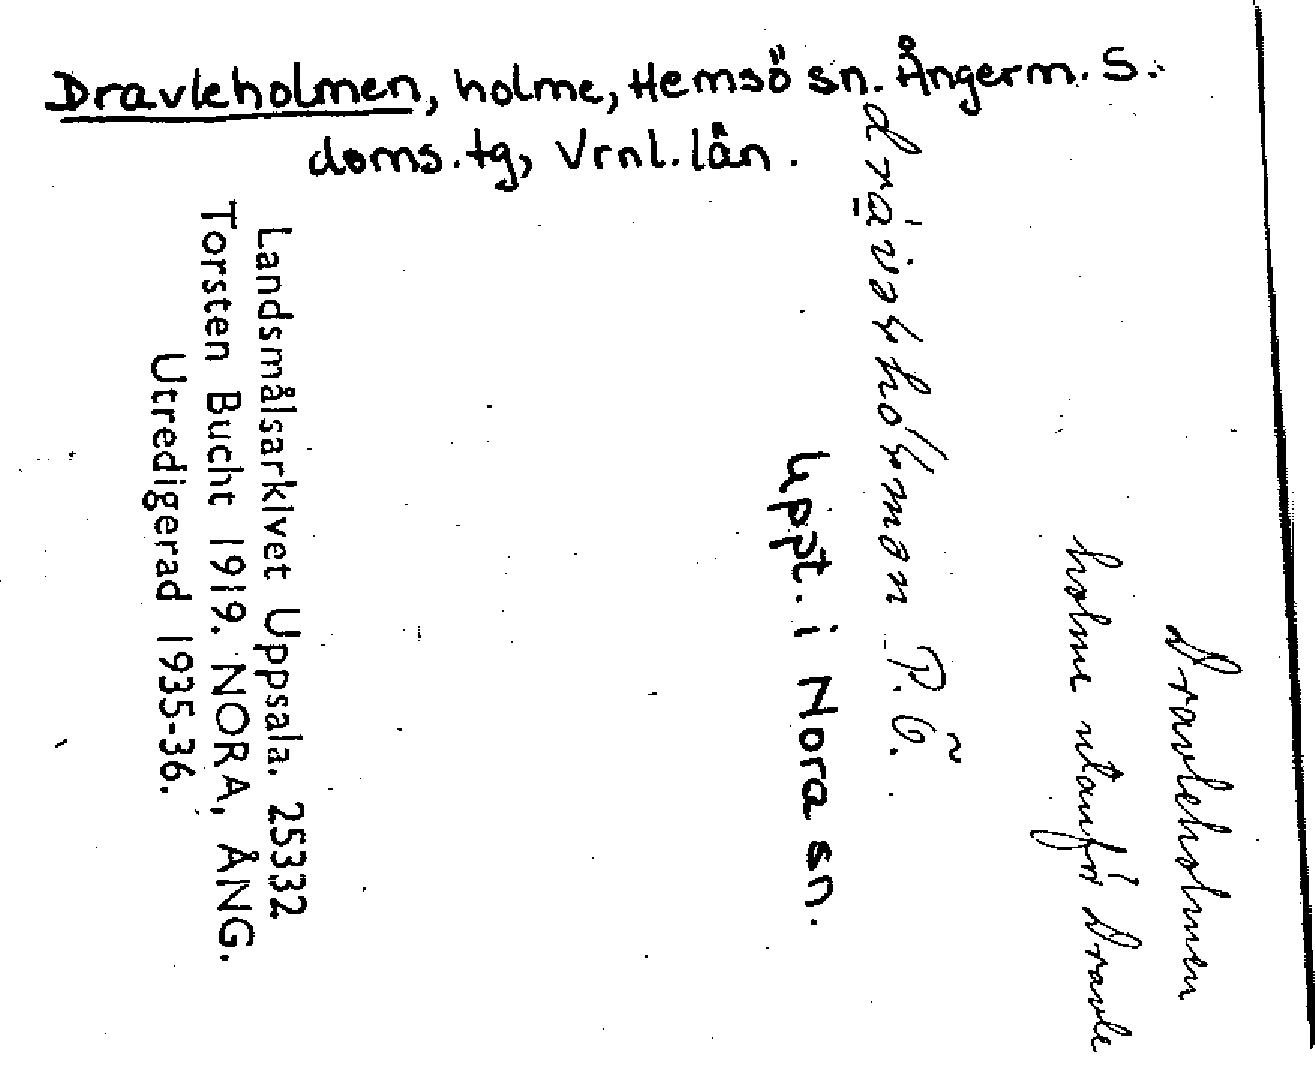 Dravleholmen, holme, Hemsö sn. Ångerm. S.
doms.tg, Vrnl. län.
Dravleholmen
holme utanför Dravle
P.Ö.
Uppt. i Nora sn.
Landsmålsarkivet Uppsala. 25332
Torsten Bucht 1919. NORA, ÅNG.
Utredigerad 1935-36.